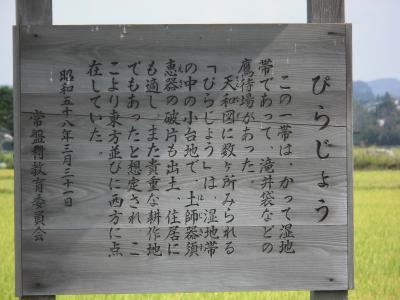 ぴらじょう
この一帯は、かつて湿地
帯であって、滝井袋などの
鷹待場があった。
天和図に数ヶ所みられる
「ぴらじょう」は、湿地帯
の中の小台地で、土師器須
恵器の破片も出土、住居に
も適し、また貴重な耕作地
でもあったと想定され、こ
こより東方並びに西方に点
在していた。
昭和五十八年三月三十一日
常盤村教育委員会